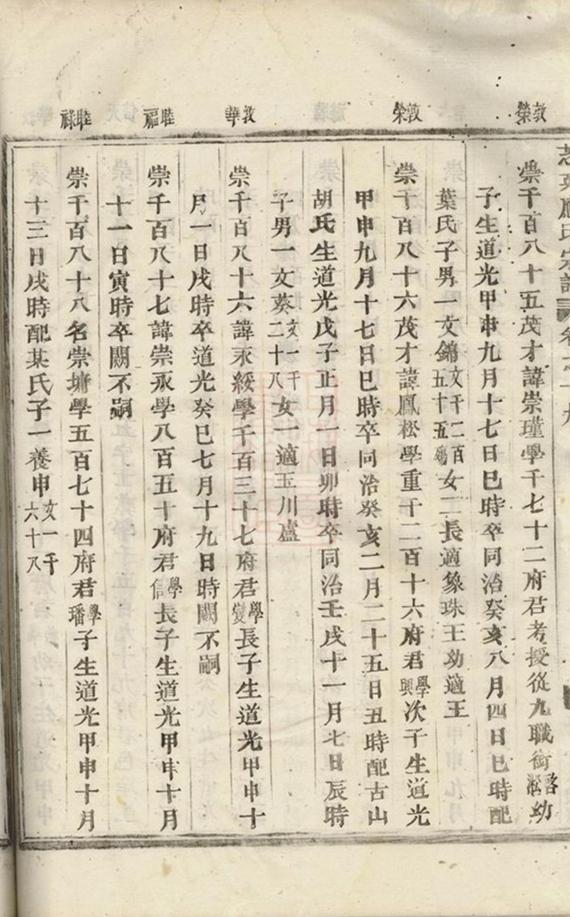 應氏宗譜
敦榮
崇千百八十五茂才諱崇瑾學千七十二府君考授從九職銜啓淞幼
子生道光甲申九月十七日巳時卒同治癸亥八月四日巳時配
葉氏子男一文錦文千二百五十五女二長適象珠王幼適王
敦榮
崇千百八十六茂才諱鳳松學重千二百十六府君學興次子生道光
甲申九月十七日巳時卒同治癸亥二月二十五日丑時配古山
胡氏生道光戊子正月一日卯時卒同治壬戌十一月七日辰時
子男一文葵文一千二十八女一適玉川盧
敦華
崇千百八十六諱永綏學千百三十七府君學燮長子生道光甲申十
月一日戌時卒道光癸巳七月十九日時闕不嗣
睦福
崇千百八十七諱崇永學八百五十府君學信長子生道光甲申十月
十一日寅時卒闕不嗣
睦祿
崇千百八十八名崇墉學五百七十四府君學璠子生道光甲申十月
十三日戌時配某氏子一養申文一千六十八